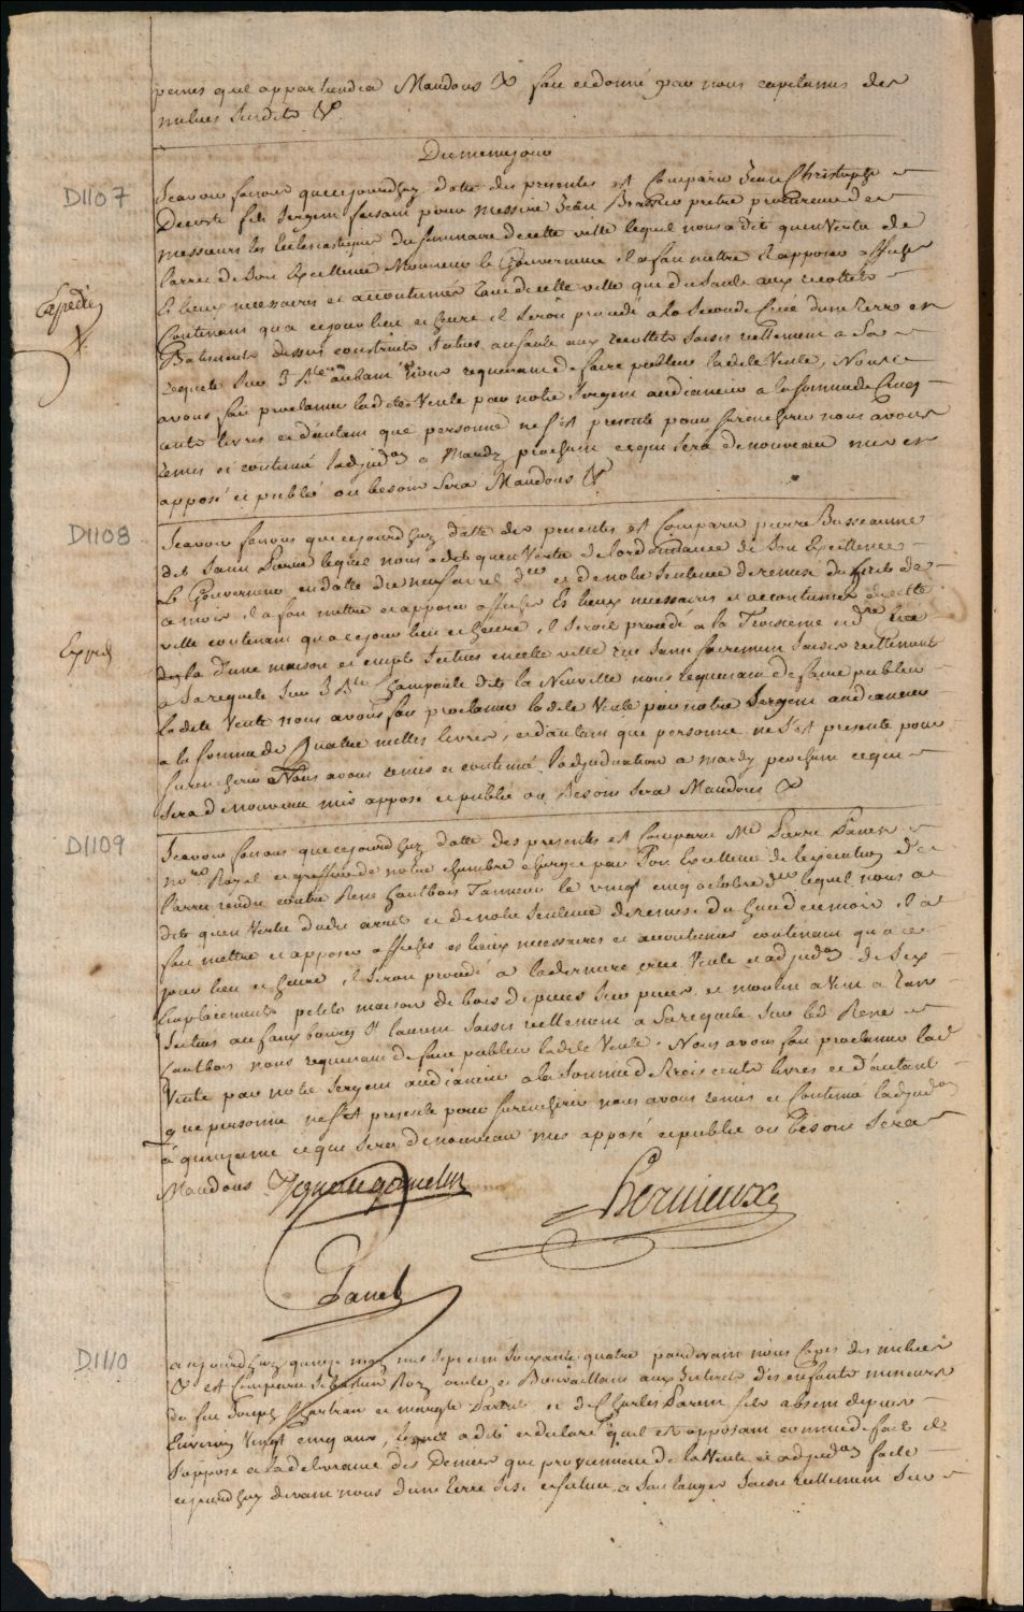 peines quil appartiendra Mandons &c fait et donné par nous capitaines des
milices susdits &c
Du meme jour
D1107
Scavoir faisons que cejourdhuy datte des presentes est Comparu Jean Christophe
Decoste fils sergent faisant pour messire Jean pretre procureur de
messieurs les Ecclesiastiques du seminaire de cette ville lequel nous a dit quen Vertu de
larret de Son Excellence Monsieur le Gouverneur il a fait mettre et apposer affiches
Es lieux necessaires et accoutumés tant de cette ville que du Sault aux recollets
Contenant qua ce jour lieu et heure il seroit procedé a la Seconde Criée dune terre et
Batiments dessus construits situés au sault aux recollets saisis reellement a Sa
requete Sur J Bte nous requerant de faire publier ladite Vente, Nous
avons fait proclamer ladite Vente par notre Sergent audiancier a la somme de Cinq
cents livres et dautant que personne ne sest presenté pour surencherir nous avons
remis et continué ladjudon a Mardy prochain ce qui sera de nouveau mis et
apposé et publié ou besoin Sera Mandons &c
Expedié
D1108
Scavoir faisons que cejourdhuy datte des presentes est Comparu pierre Busseaume
dit Saint Pierre lequel nous a dit quen Vertu de lordonnance de Son Excellence
Le Gouverneur en datte du neuf avril der et de notre Sentence de remise du de
ce mois il a fait mettre et apposer affiches Es lieux necessaires et accoutumés de cette
ville contenant qua ce jour lieu et heure, il seroit procedé a la Troisieme et dre criée
dune maison et empt situés en cette ville rue Saint saisis reellement
a Sa requete Sur J Bte Champoile dit la Neuville nous requerant de faire publier
ladite Vente nous avons fait proclamer ladite Vente par notre Sergent audiancier
a la somme de Quatre milles livres, et dautant que personne ne sest presenté pour
surencherir Nous avons remis et continué ladjudication a mardy prochain ce qui
sera de nouveau mis apposé et publié ou Besoin Sera Mandons &c
Exped
D1109
Scavoir faisons que cejourdhuy datte des presentes est Comparu Me Pierre Panet
nore Royal et greffier de notre chambre chargé par Son Excellence de lexecution de
larret rendu contre René hautbois Tanneur le vingt cinq octobre der lequel nous a
dit quen Vertu dudit arret et de notre Sentence de remise du huit de ce mois il a
fait mettre et apposer affiches es lieux necessaires et accoutumés contenant qua ce
jour lieu et heure, il seroit procedé a la derniere criée Vente et adjudon de Six
Emplacements petite maison de bois de pieces sur pieces et moulin a
situés au faux bourg St laurent saisis reellement a Sa requete sur led René
hautbois nous requerant de faire publier ladite Vente. Nous avons fait proclamer lad
Vente par notre sergent audiancier a la somme de trois cents livres et d'autant
que personne ne sest presenté pour surencherir nous avons remis et continué ladjudon
à quinzaine ce qui sera de nouveau mis apposé et publié ou besoin sera
Mandons Ignace gamelin
hervieux
Panet
D1110
aujourdhuy quinze may mil sept cent soixante quatre pardevant nous Capes des milices
&c est Comparu Roy oncle et aux interets des enfants mineurs
de feu Joseph Chartran et margte et de Charles Parent fils absent depuis
Environ Vingt cinq ans, lequel a dit et declaré quil est opposant comme de fait il
soppose a la delivrance des deniers qui proviennent de la Vente et adjudon faite
cejourdhuy devant nous dune terre sise et située a saisie reellement sur